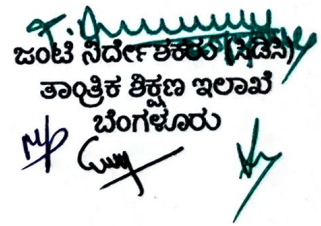 ಜಂಟಿ ನಿರ್ದೇಶಕರು (ಸಿಡಿಸಿ)
ತಾಂತ್ರಿಕ ಶಿಕ್ಷಣ ಇಲಾಖೆ
ಬೆಂಗಳೂರು